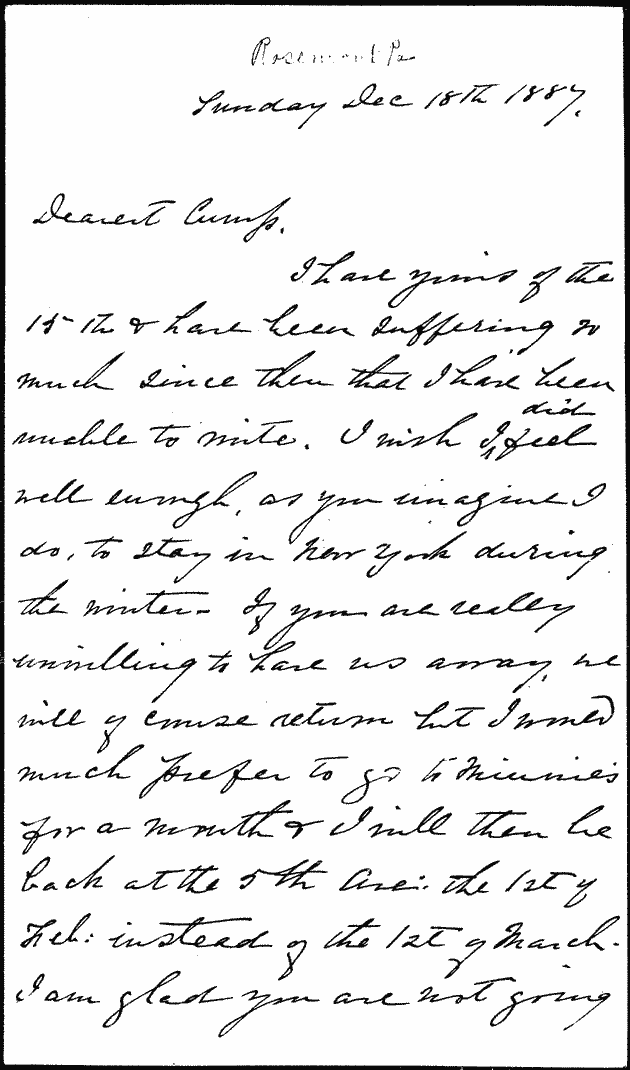 Rosemont Pa
Sunday Dec 18th 1887.
Dearest Cump.
I have yours of the
15th & have been suffering so
much since then that I have been
unable to write. I wish I did feel
well enough, as you imagine I
do, to stay in New York during
the winter- If you are really
unwilling to have us away, we
will of course return but I would
much prefer to go to Minnie's
for a month & I will then be
back at the 5th Ave: the 1st of
Feb: instead of the 1st of March.
I am glad you are not going